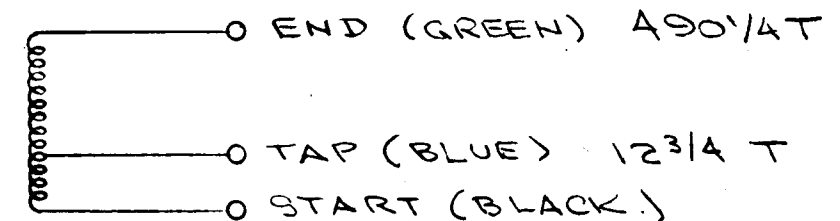 END (GREEN) 490 1/4 T
TAP (BLUE) 12 3/4 T
START (BLACK.)